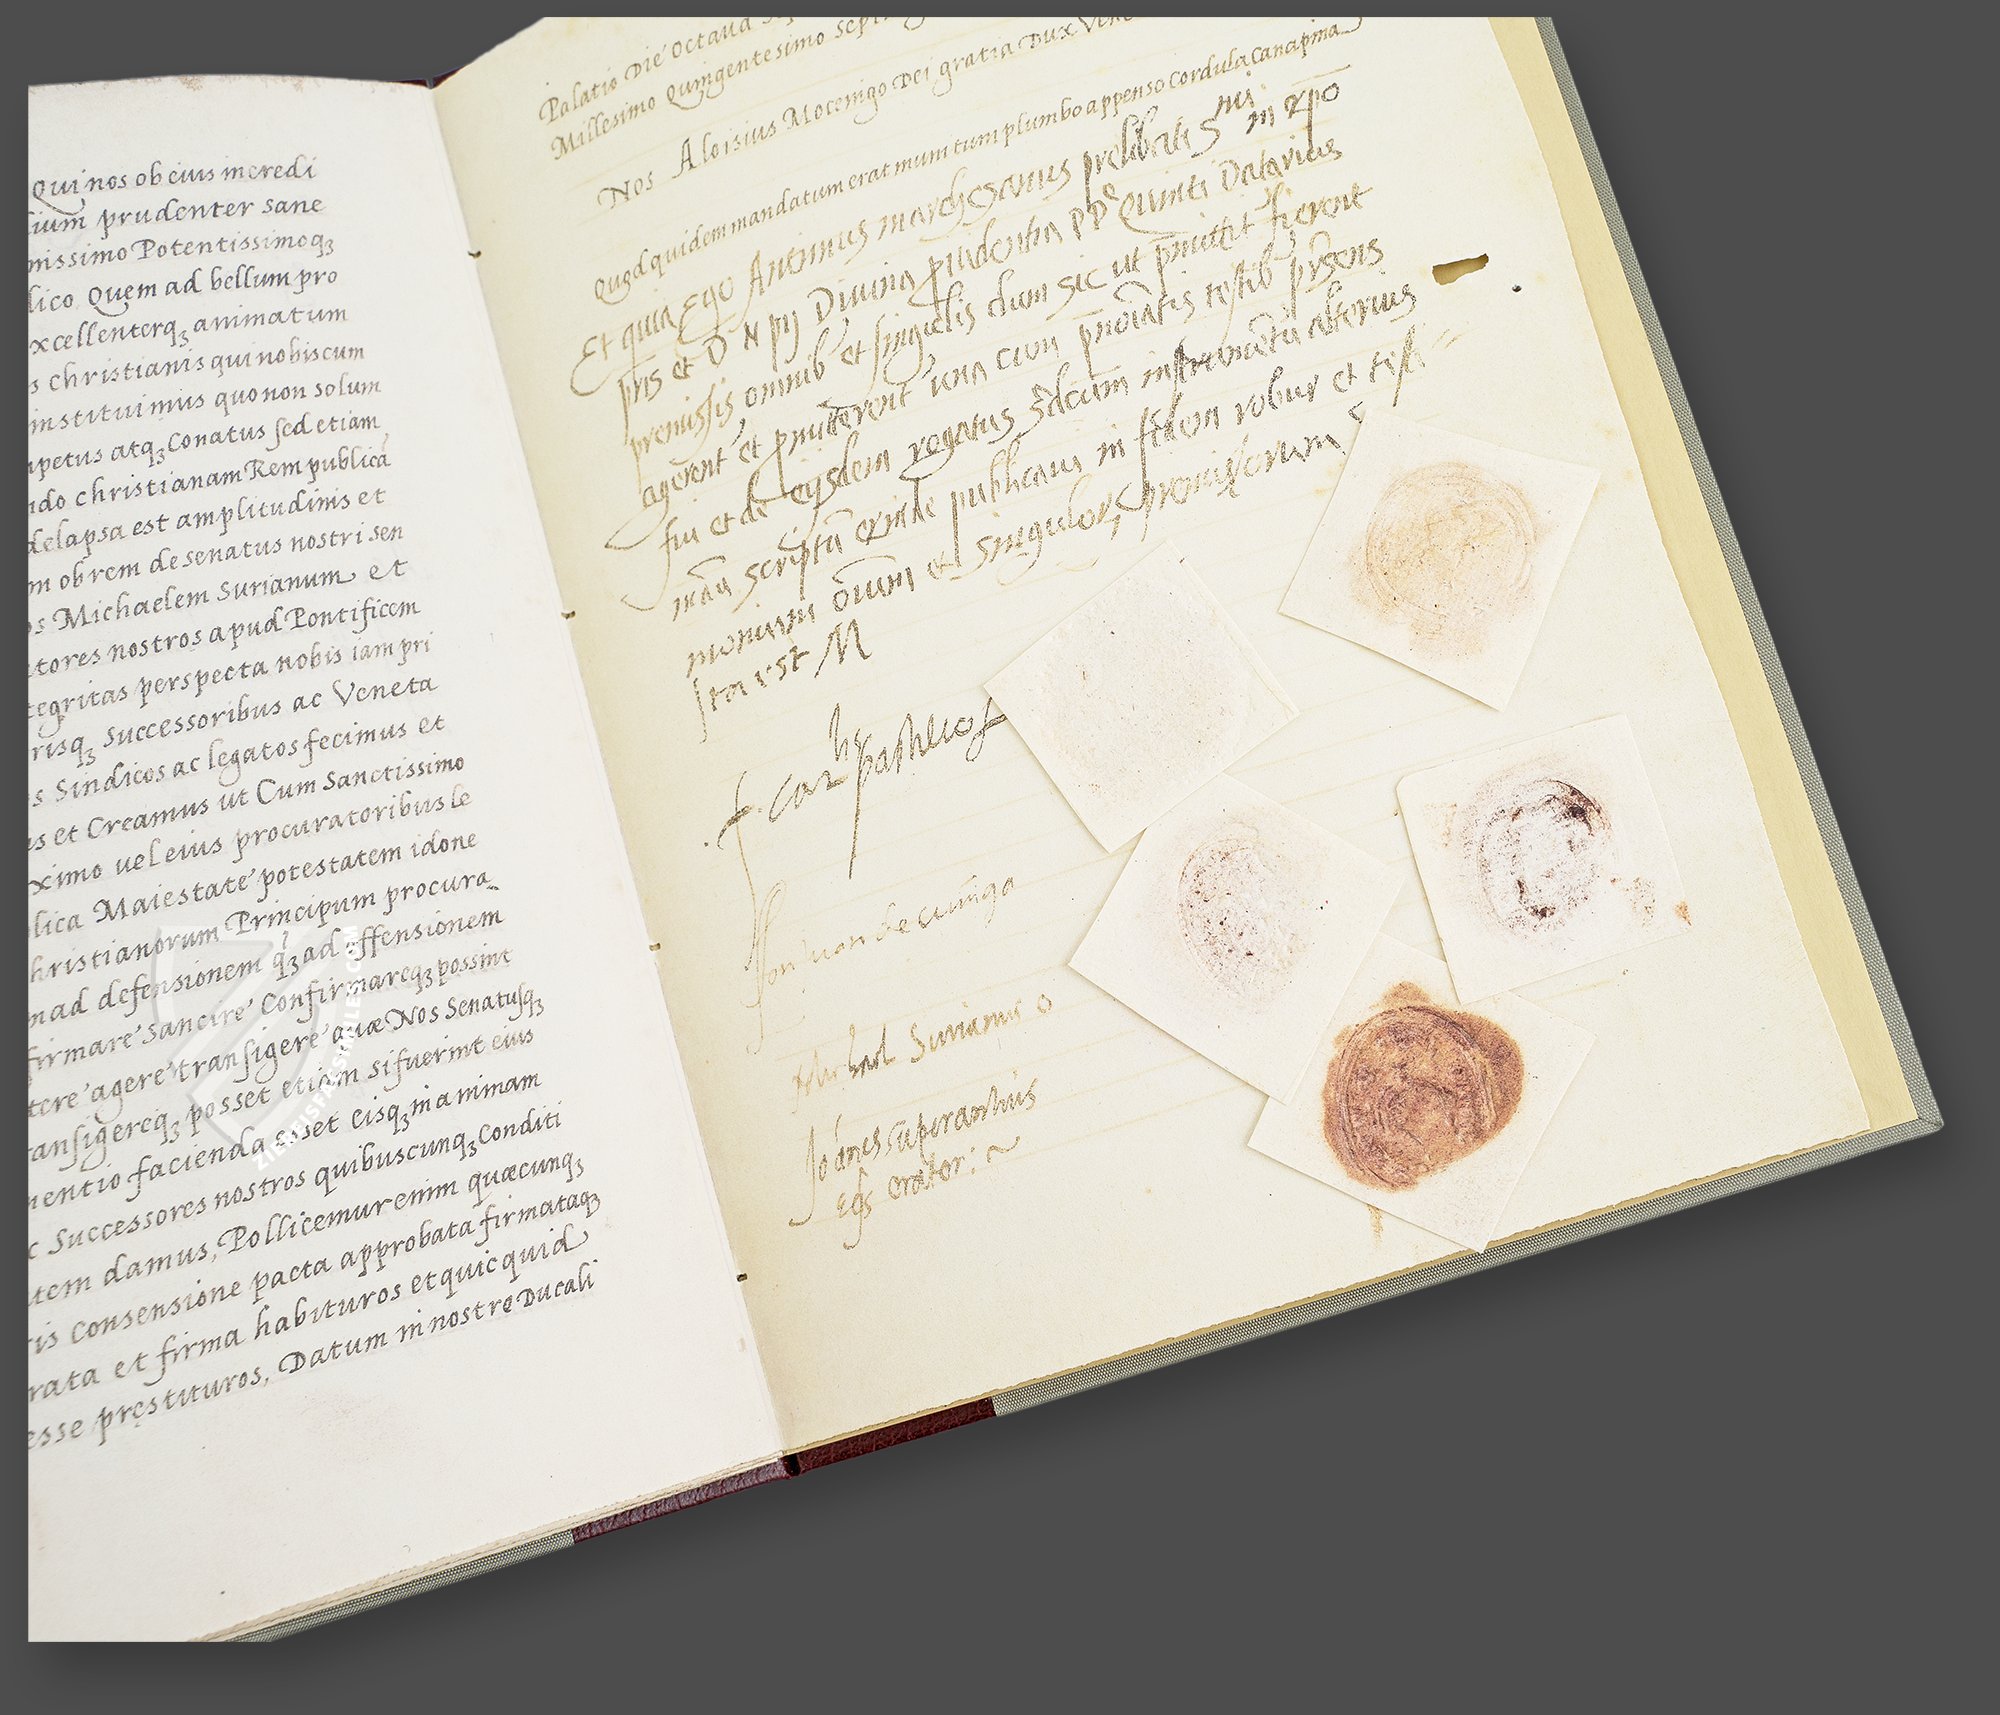 Qui nos ob eius incredi
prudenter sane
nissimo Potentissimoqꝫ
Quem ad bellum pro
xcellenterqꝫ animatum
s Christianis qui nobiscum
instituimus quo non solum
petus atqꝫ conatus sed etiam
ndo Christianam Rem publicā
delapsa est amplitudinis et
m ob rem de senatus nostri sen
os Michaelem Surianum et
tores nostros apud Pontificem
tegritas perspecta nobis iam pri
risqꝫ Successoribus ac Veneta
s Sindicos ac legatos fecimus et
us et Creamus ut Cum Sanctissimo
ximo uel eius procuratoribus le
lica Maiestate potestatem idone
hristianorum Principum procura
m ad defensionem qꝫ ad offensionem
firmare Sancire Confirmareqꝫ possint
tere agere transigere quæ Nos Senatusqꝫ
ansigereqꝫ posset etiam si fuerint eius
mentio facienda esset eisqꝫ in animam
c Successores nostros quibuscunqꝫ Conditi
tem damus, Pollicemur enim quæcunqꝫ
ris Consensione pacta approbata firmataqꝫ
rata et firma habituros et quicquid
esse pręstituros, Datum in nostro Ducali
Palatio Die Octaua
Millesimo Quingentesimo Sep
Nos Aloisius Mocenigo Dei gratia Dux Vene
Quod quidem mandatum erat munitum plumbo appenso Cordula Canapina
Et quia Ego Antonius marchesanus prelibati Sᵐⁱ in xpo
pris et D N pij Diuina prudentia PPᵉ Quinti Datarius
premissis omnib et singulis dum sic ut p̄mittit fierent
agerent et p̄mitterent una cum p̄noiatis testib pr̄sens
fui et de eisdem rogatus hoc p̄ns instrumētu alterius
manu scriptū exinde publicaui in fidem robur et testi=
monium oium et singulorꝫ premissorum
Ita est M
f. Car Pacheco
Don Juan de cuniga
Michael Surianus o
Joānes superantius
Eqs orator: ~
ZIEREISFACSIMILES.COM